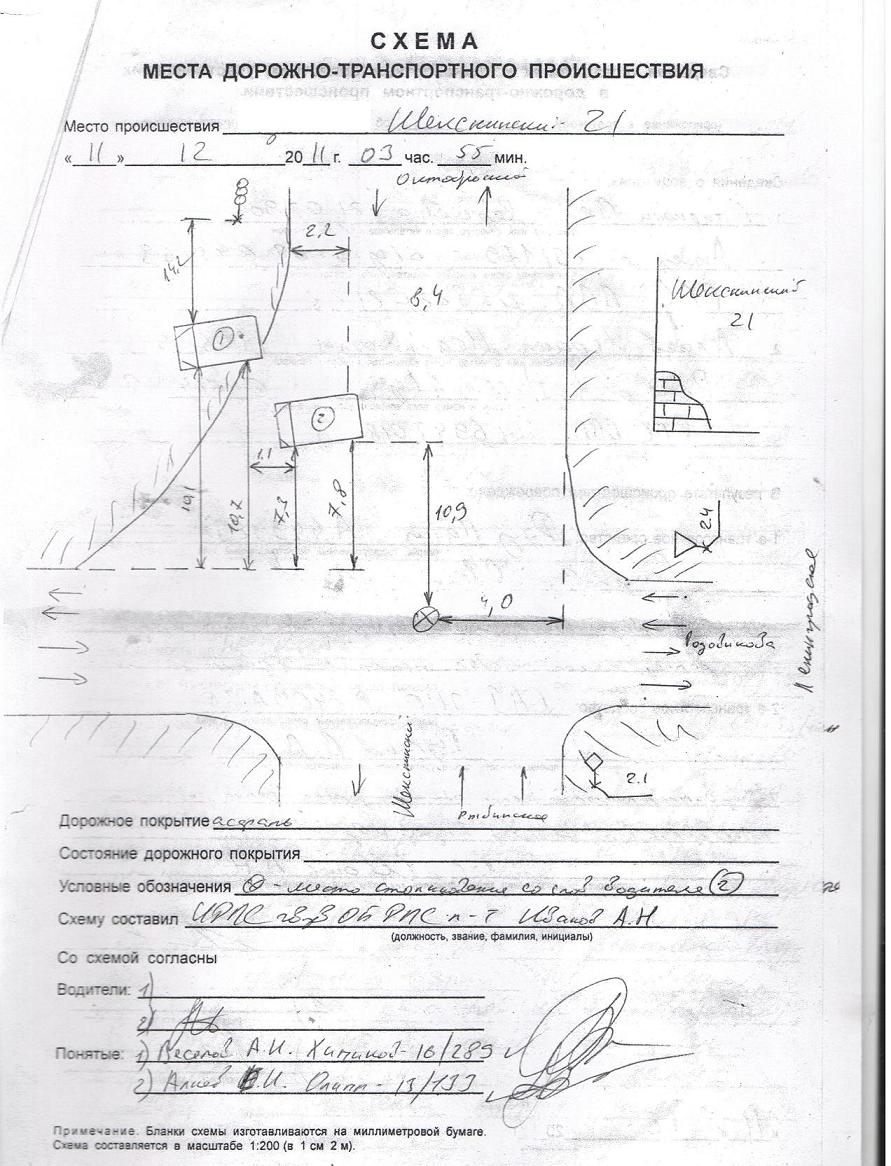 СХЕМА
МЕСТА ДОРОЖНО-ТРАНСПОРТНОГО ПРОИСШЕСТВИЯ
Место происшествия Шекснинский- 21
« 11 » 12 20 11 г. 03 час. 55 мин.
Октябрьский
2,2
14,2
8,4
Шекснинский
21
1
2
1.1
10,1
10,7
7,3
7,8
10,9
2.4
4,0
Годовикова
Ленинградское
Шекснинский
2.1
Рыбинское
Дорожное покрытие асфаль
Состояние дорожного покрытия
Условные обозначения ⊗ - место столкновение со слов водителя 2
Схему составил ИДПС ОБ ДПС л-т Иванов А.Н
(должность, звание, фамилия, инициалы)
Со схемой согласны
Водители: 1)
2)
Понятые: 1) Веселов А.И. Химиков- 16/289
2) Алиев И. Олимп - 13/133
Примечание. Бланки схемы изготавливаются на миллиметровой бумаге.
Схема составляется в масштабе 1:200 (в 1 см 2 м).